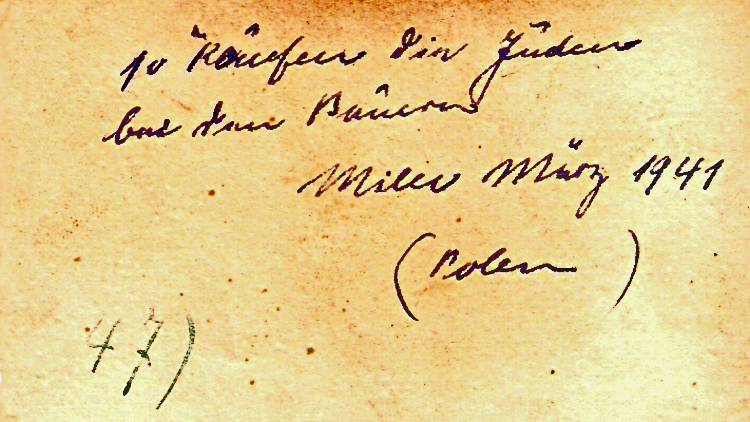 so kaufen die Juden
bei den Bauern
Milec März 1941
(Polen)
47)